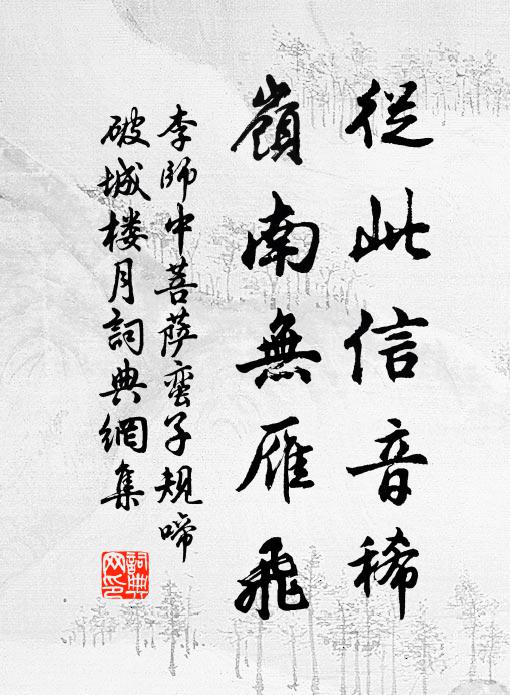 從此信音稀
嶺南無雁飛
李師中菩萨蛮子規啼
破城楼月詞典網集
詞典网印